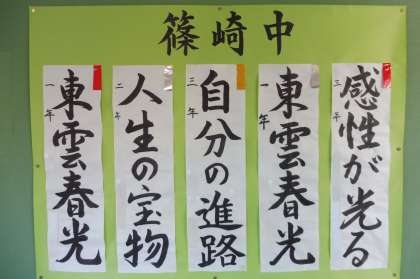 篠崎中
感性が光る
三年
東雲春光
一年
自分の進路
三年
人生の宝物
二年
東雲春光
一年